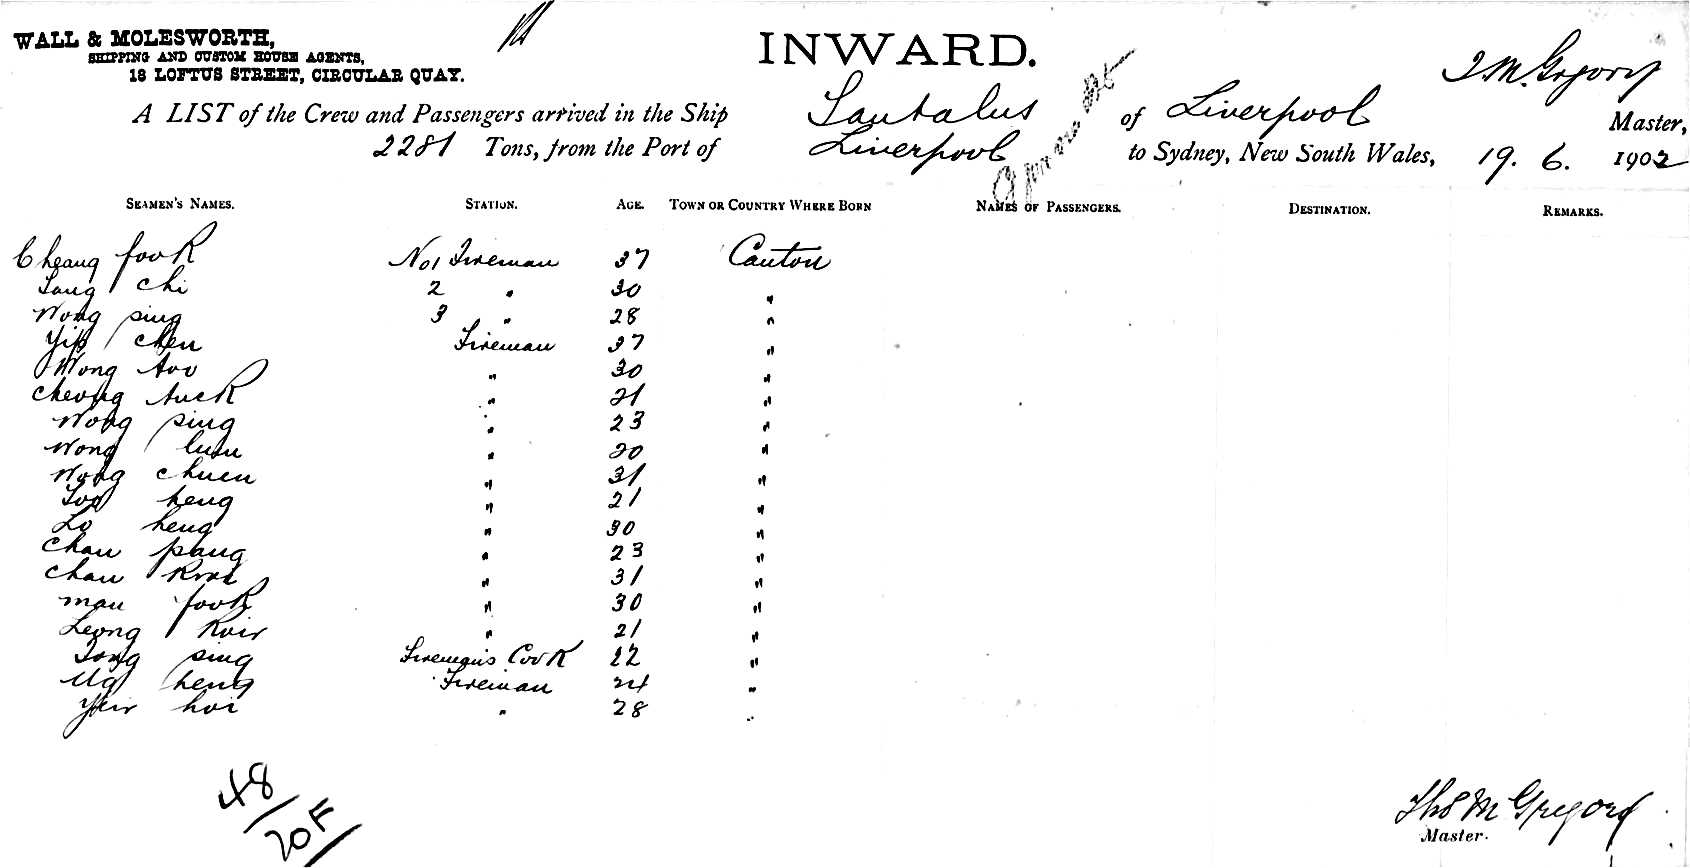 WALL & MOLESWORTH,
SHIPPING AND CUSTOM HOUSE AGENTS,
18 LOFTUS STREET, CIRCULAR QUAY.
INWARD.
A LIST of the Crew and Passengers arrived in the Ship Tantalus of Liverpool T. McGregory Master,
2281 Tons, from the Port of Liverpool to Sydney, New South Wales, 19. 6. 1902
SEAMEN'S NAMES. STATION. AGE. TOWN OR COUNTRY WHERE BORN NAMES OF PASSENGERS. DESTINATION. REMARKS.
Cheang fook No1 Fireman 37 Canton
Tang Chi 2 " 30 "
Wong sing 3 " 28 "
Yip Chen Fireman 37 "
Wong " 30 "
Cheong tuck " 21 "
Wong sing " 23 "
Wong " 20 "
Wong Chuen " 31 "
Too heng " 21 "
Lo heng " 30 "
Chan pang " 23 "
Chan " 31 "
man fook " 30 "
Leong " 21 "
Tong sing Fireman's Cook 22 "
Ug heng Fireman 24 "
hoi " 28 "
48
20F
Thos McGregory
Master.